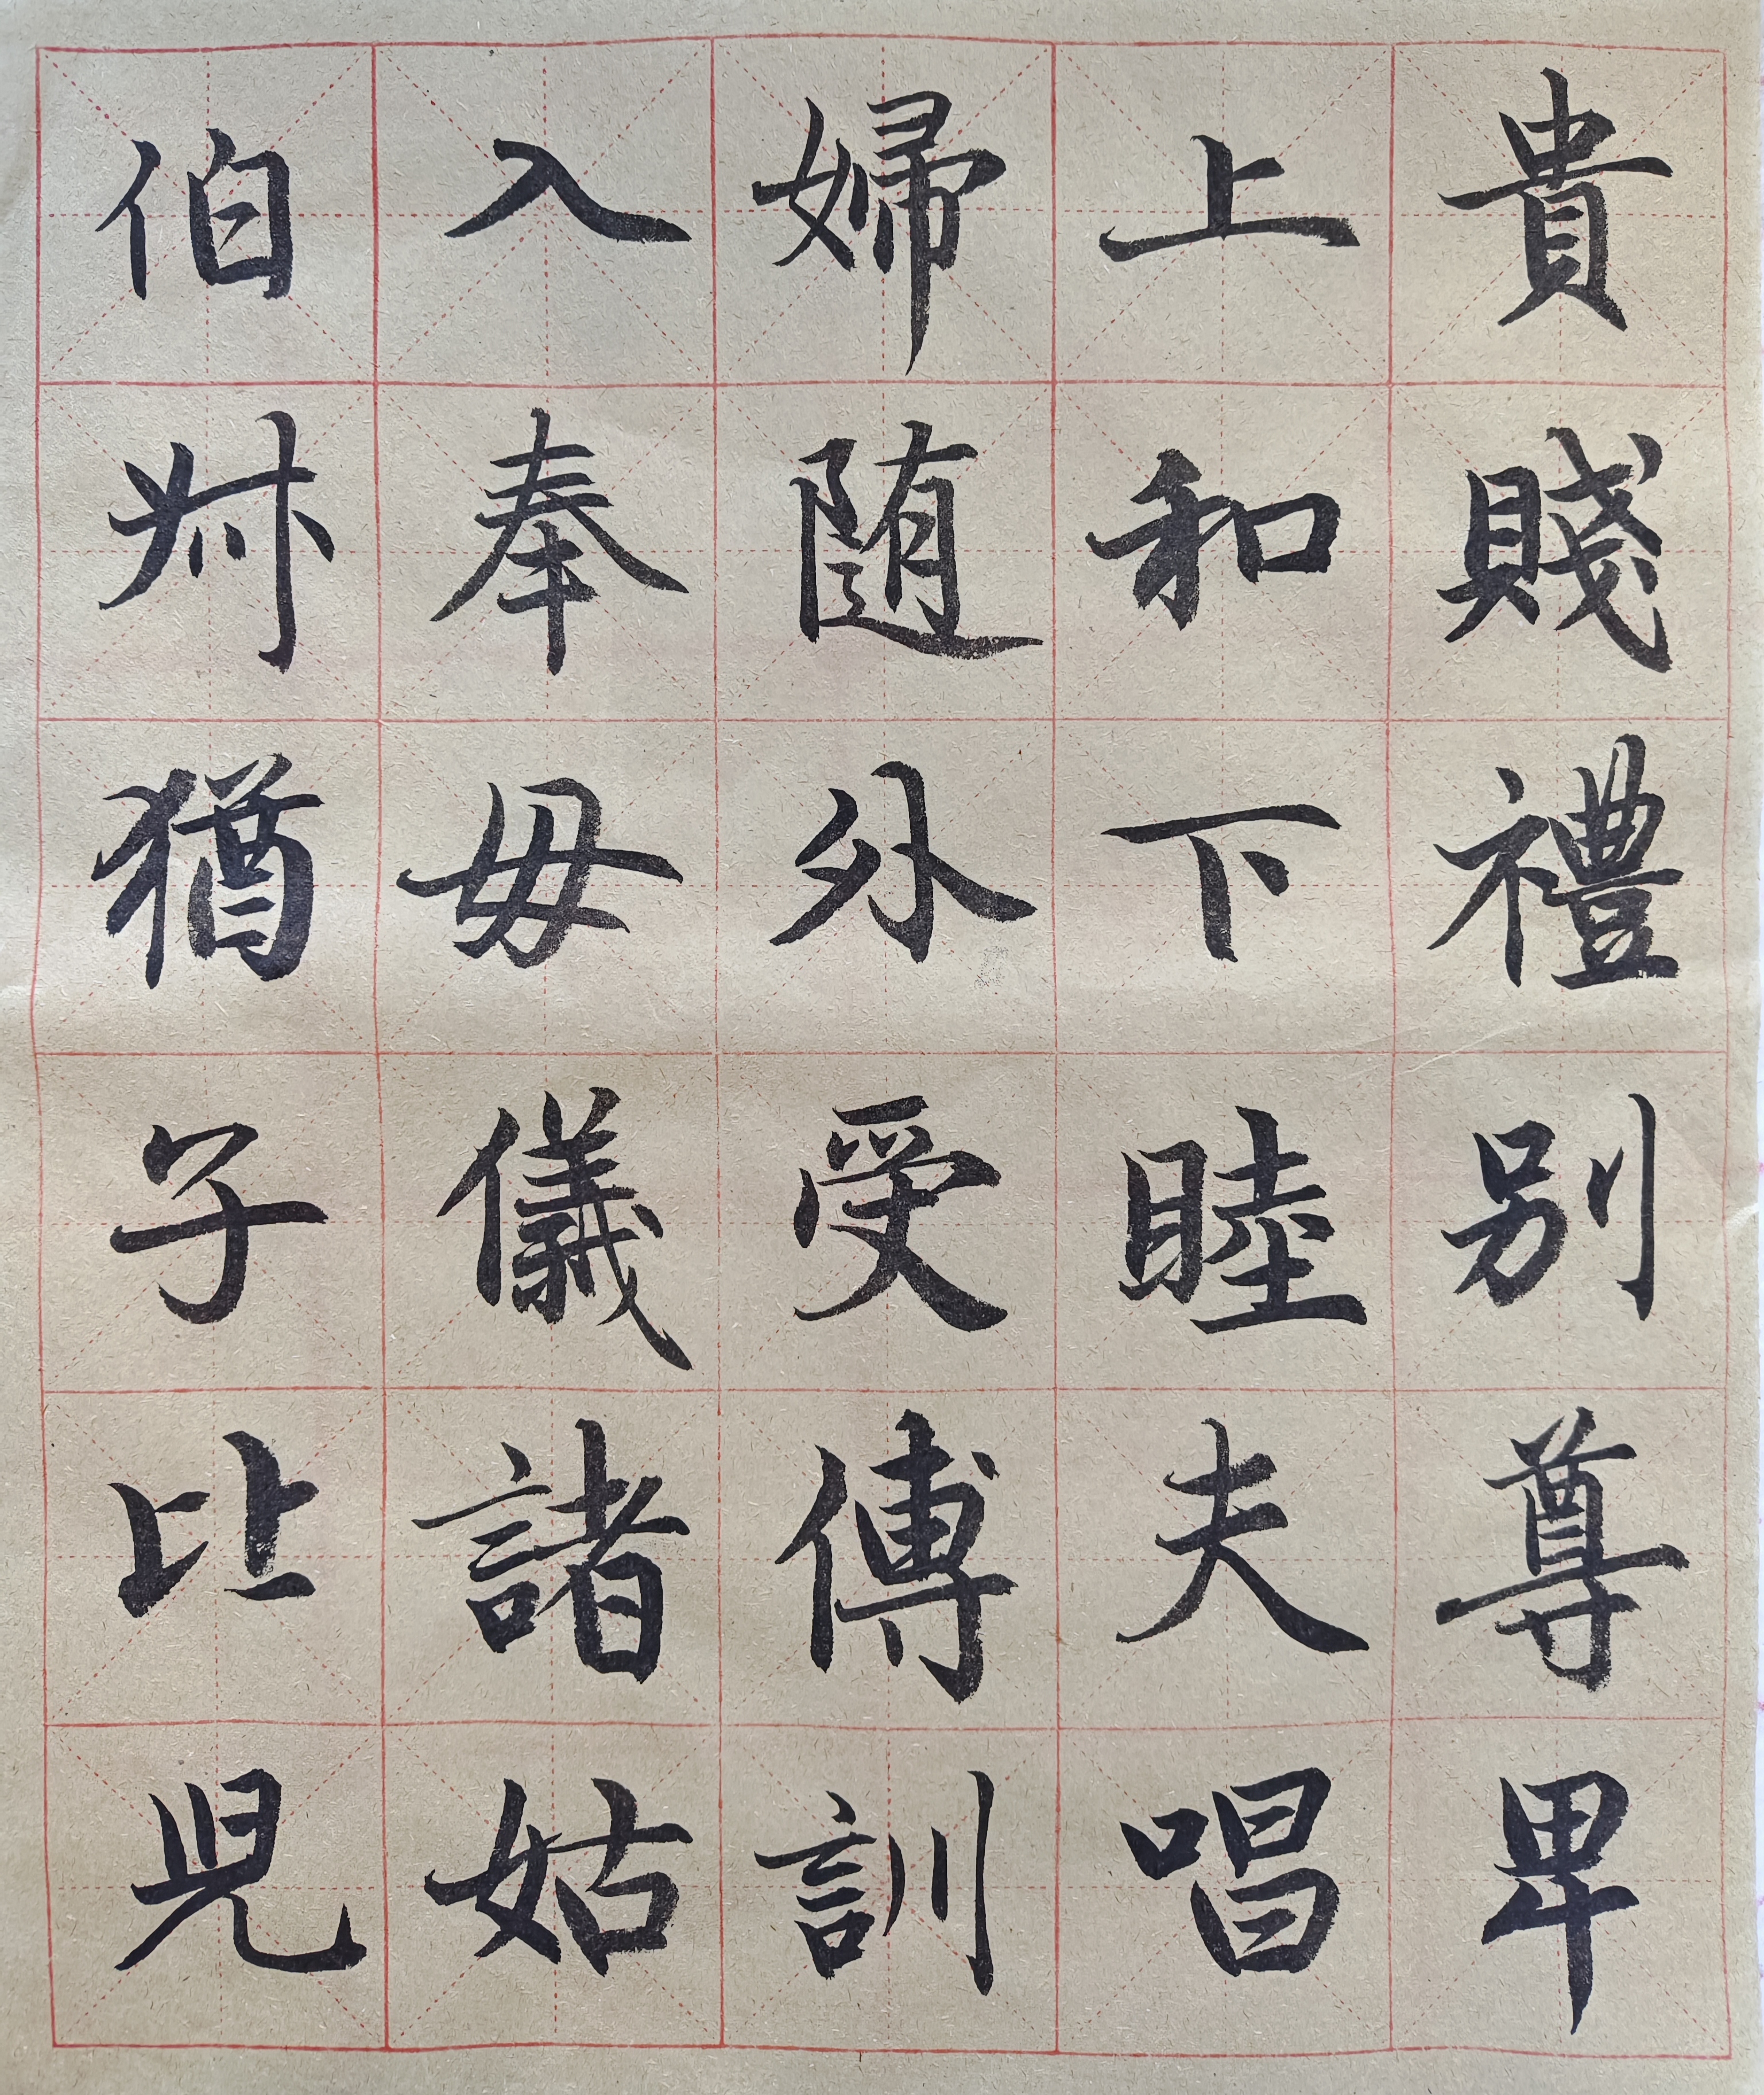 貴賤禮別尊卑
上和下睦夫唱
婦随外受傅訓
入奉母儀諸姑
伯叔猶子比兒